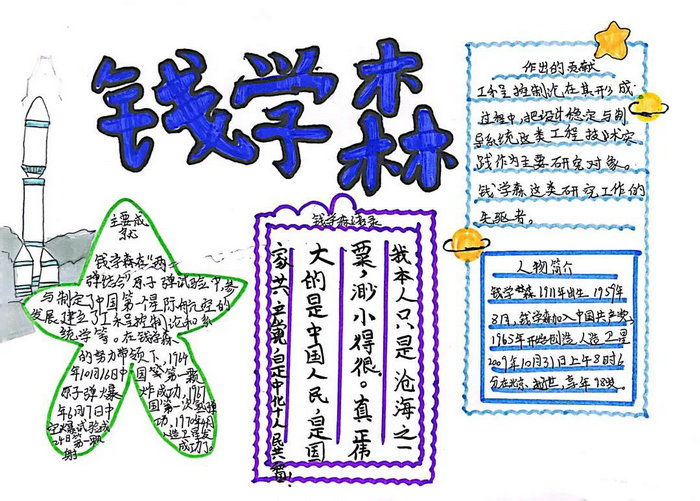 钱学森
主要成
就
钱学森在“两一
弹结合”原子弹试验中,参
与制定了中国第一个星际航空的
发展,建立了工程控制论和系
统学等。在钱学森
的努力带领下,1964
年10月16日中国第一颗
原子弹爆炸成功,1967
年6月17日中国第一次氢弹
空爆试验成功,1970年4月
24日第一颗人造卫星发
射成功了。
钱学森语录
我本人只是沧海之一
粟,渺小得很。真正伟
大的是中国人民,是国
家共
作出的贡献
工程控制论在其形成
过程中,把设计稳定与制
导系统这类工程技术实
践作为主要研究对象。
钱学森这类研究工作的
先驱者。
人物简介
钱学森 1911年出生,1959年
8月,钱学森加入中国共产党,
1965年开始创造人造卫星
2009年10月31日上午8时6
分在北京逝世,享年98岁。